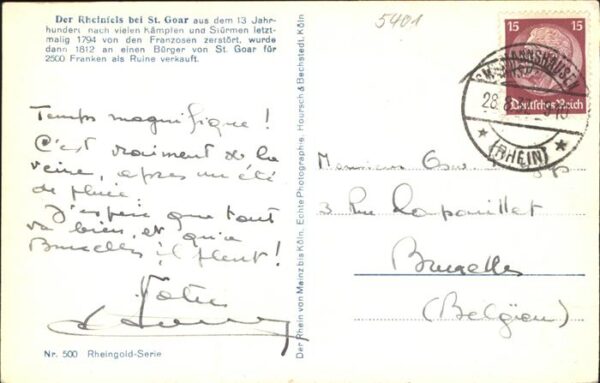 Der Rheinfels bei St. Goar aus dem 13 Jahr-
hundert nach vielen Kämpfen und Stürmen letzt-
malig 1794 von den Franzosen zerstört, wurde
dann 1812 an einen Bürger von St. Goar für
2500 Franken als Ruine verkauft.
5401
15 15
Deutsches Reich
28.8
(RHEIN)
Temps magnifique !
C'est vraiment de la
veine, après un été
de pluie.
J'espère que tout
va bien, et qu'à
Bruxelles il pleut !
Votre
Der Rhein von Mainz bis Köln. Echte Photographie. Hoursch & Bechstedt, Köln
Monsieur
3 Rue
Bruxelles
(Belgien)
Nr. 500 Rheingold-Serie